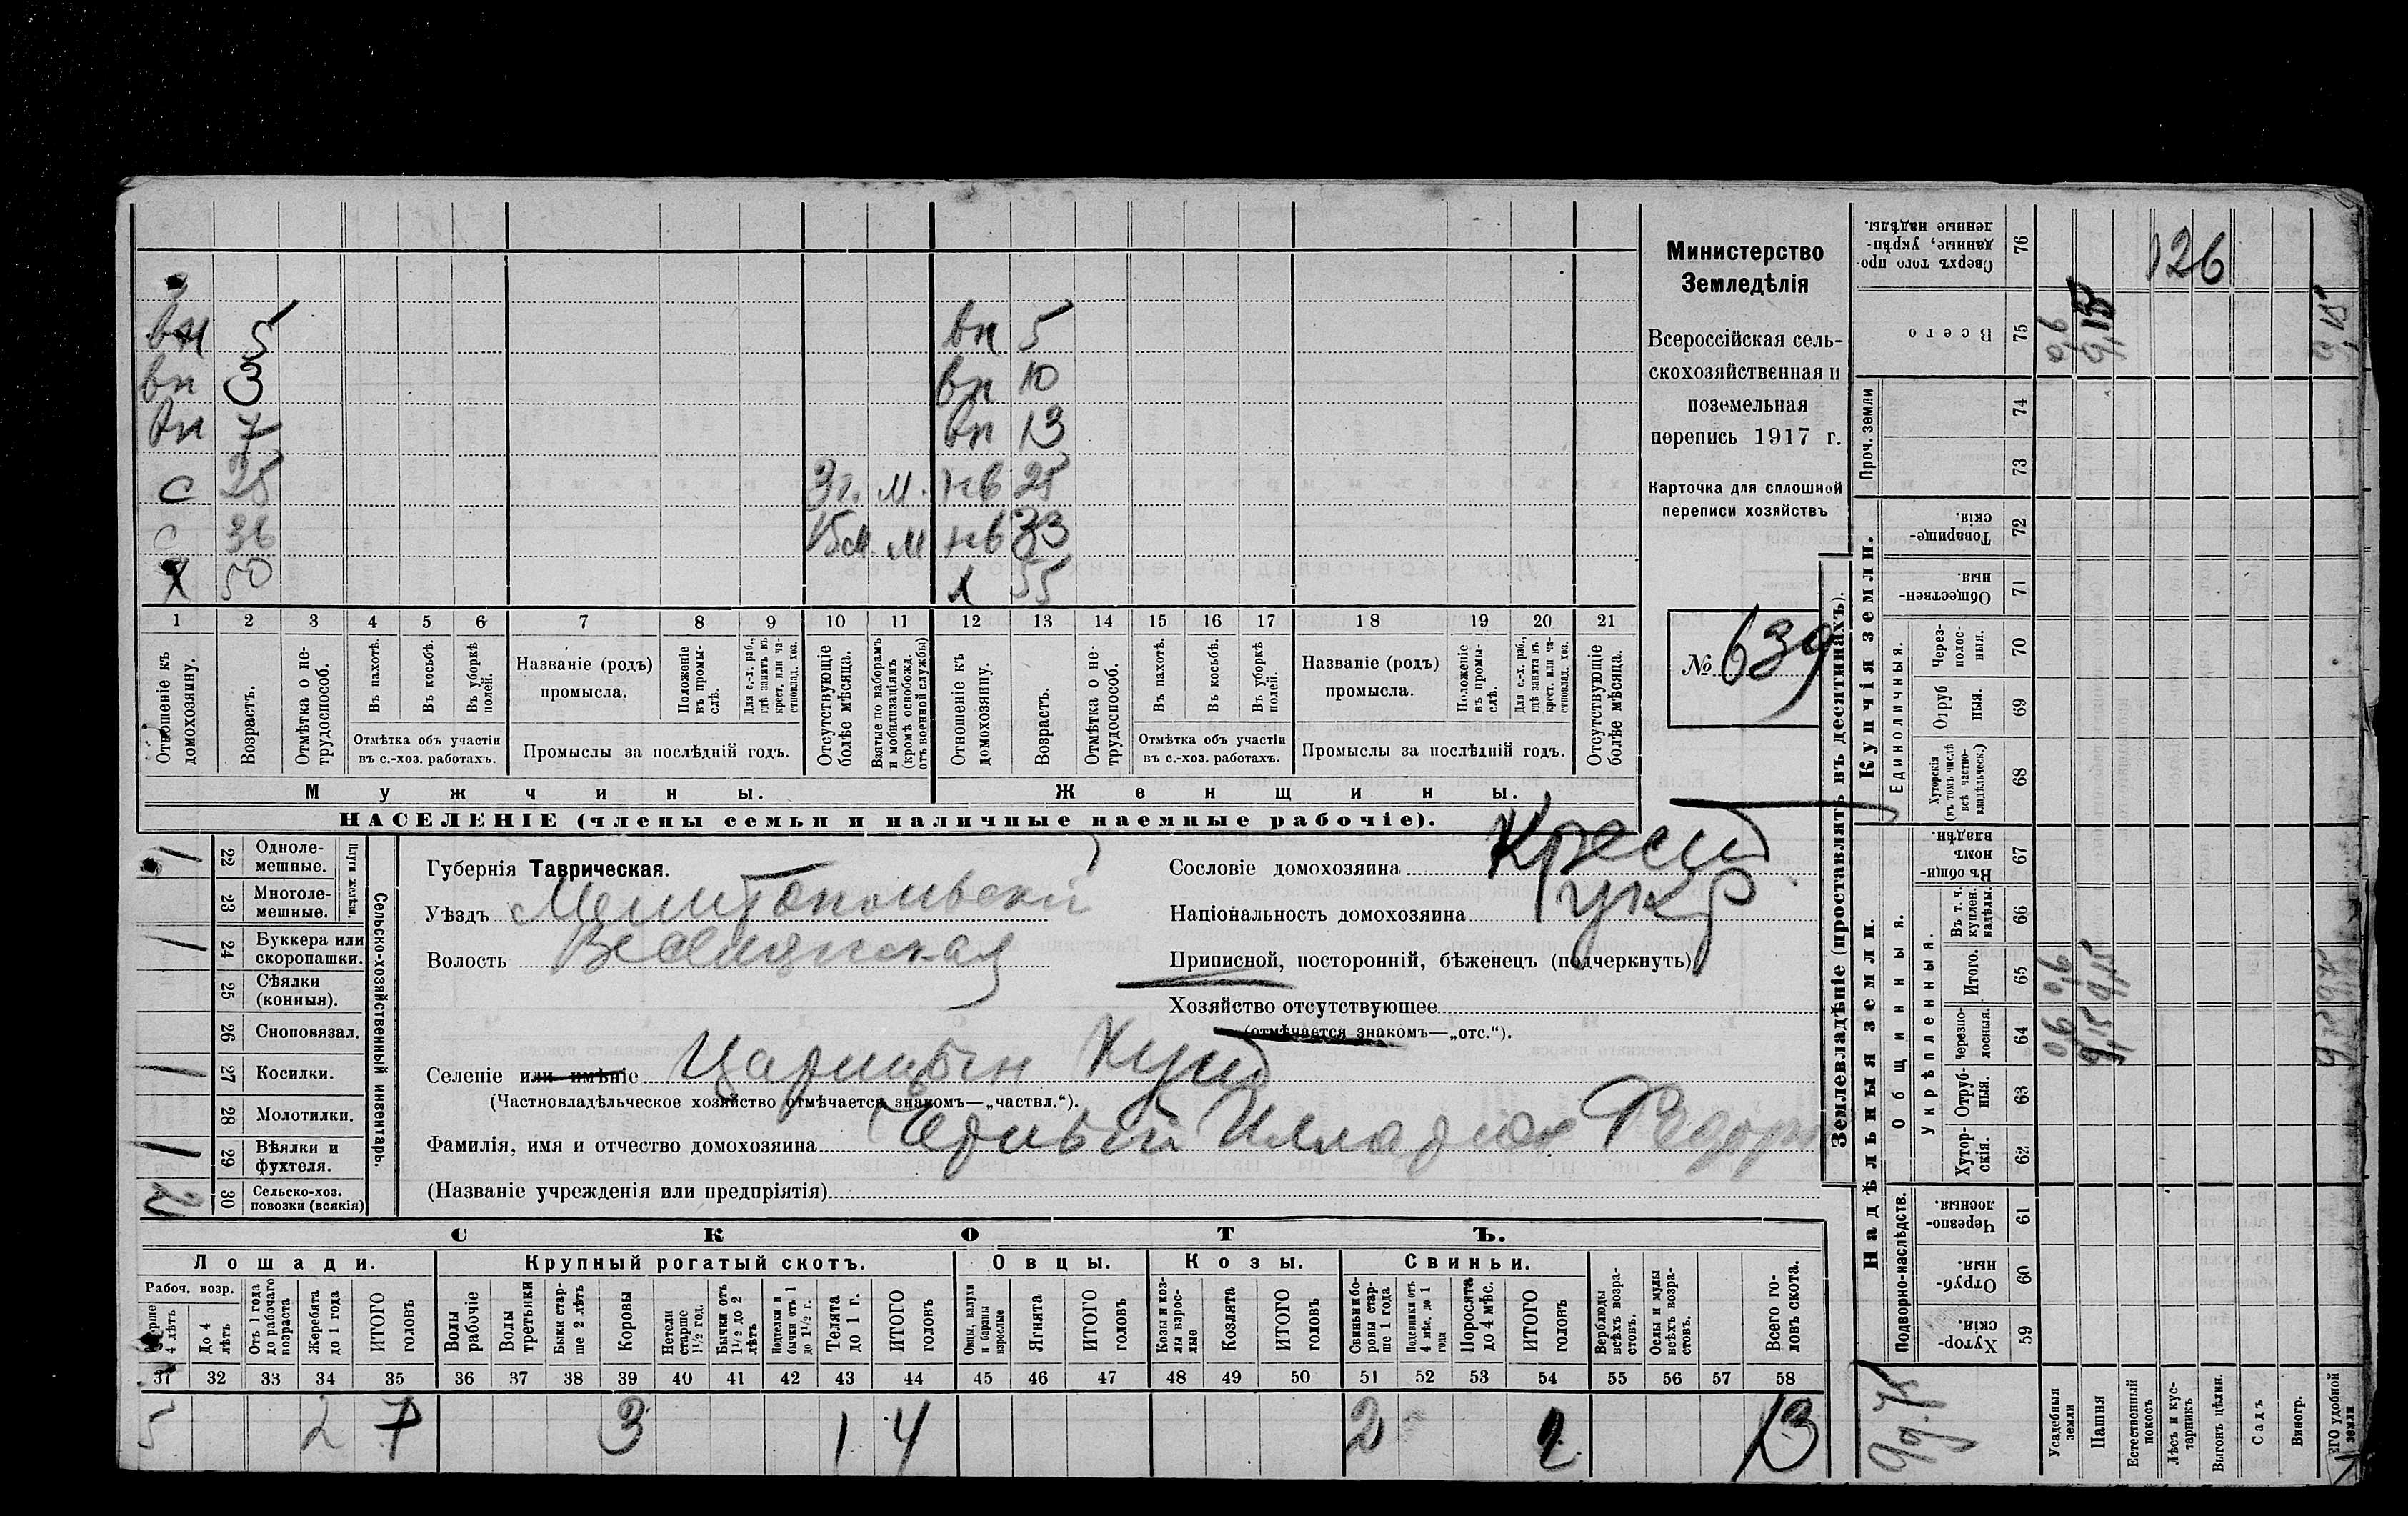 вн 5 вн 5
вн 3 вн 10
вн 7 вн 13
с 25 3 г. м. нв 25
с 36 15 м. м нв 33
х 50 х 55
1 2 3 4 5 6 7 8 9 10 11 12 13 14 15 16 17 18 19 20 21
Отношеніе къ домохозяину.
Возрастъ.
Отмѣтка о нетрудоспособ.
Въ пахотѣ.
Въ косьбѣ.
Въ уборкѣ полей.
Отмѣтка объ участіи въ с.-хоз. работахъ.
Названіе (родъ) промысла.
Положеніе въ промыслѣ.
Для с.-х. раб., гдѣ занятъ въ крест. или частновлад. хоз.
Промыслы за послѣдній годъ.
Отсутствующіе болѣе мѣсяца.
Взятые по наборамъ и мобилизаціямъ (кромѣ освобожд. отъ военной службы)
Отношеніе къ домохозяину.
Возрастъ.
Отмѣтка о нетрудоспособ.
Въ пахотѣ.
Въ косьбѣ.
Въ уборкѣ полей.
Отмѣтка объ участіи въ с.-хоз. работахъ.
Названіе (родъ) промысла.
Положеніе въ промыслѣ.
Для с.-х. раб., гдѣ занята въ крест. или частновлад. хоз.
Промыслы за послѣдній годъ.
Отсутствующіе болѣе мѣсяца.
Мужчины. Женщины.
НАСЕЛЕНІЕ (члены семьи и наличные наемные рабочіе).
Министерство
Земледѣлія
Всероссійская сель-
скохозяйственная и
поземельная
перепись 1917 г.
Карточка для сплошной
переписи хозяйствъ
№ 639
1 22 Одноле-мешные.
23 Многоле-мешные.
Плуги желѣзн.
1 24 Буккера или скоропашки.
25 Сѣялки (конныя).
26 Сноповязал.
1 27 Косилки.
28 Молотилки.
1 29 Вѣялки и фухтеля.
2 30 Сельско-хоз. повозки (всякія)
Сельско-хозяйственный инвентарь.
Губернія Таврическая.
Уѣздъ Мелитопольскій
Волость Веселянская
Селеніе или имѣніе Царицын Кут
(Частновладѣльческое хозяйство отмѣчается знакомъ—„частвл.“).
Фамилія, имя и отчество домохозяина Федор
(Названіе учрежденія или предпріятія)
Сословіе домохозяина Крест
Національность домохозяина укр
Приписной, посторонній, бѣженецъ (подчеркнуть)
Хозяйство отсутствующее
(отмѣчается знакомъ—„отс.“).
СКОТЪ.
Лошади. Крупный рогатый скотъ. Овцы. Козы. Свиньи.
Рабоч. возр.
Старше 4 лѣтъ
До 4 лѣтъ
Отъ 1 года до рабочаго возраста
Жеребята до 1 года
ИТОГО головъ
Волы рабочіе
Волы третьяки
Быки старше 2 лѣтъ
Коровы
Нетели старше 1½ год.
Бычки отъ 1½ до 2 лѣтъ
Подтелки и бычки отъ 1 до 1½ г.
Телята до 1 г.
ИТОГО головъ
Овцы, валухи и бараны взрослые
Ягнята
ИТОГО головъ
Козы и козлы взрослые
Козлята
ИТОГО головъ
Свиньи боровы старше 1 года
Подсвинки отъ 4 мѣс. до 1 года
Поросята до 4 мѣс.
ИТОГО головъ
Верблюды всѣхъ возрастовъ.
Ослы и мулы всѣхъ возрастовъ.
Всего головъ скота.
31 32 33 34 35 36 37 38 39 40 41 42 43 44 45 46 47 48 49 50 51 52 53 54 55 56 57 58
5 2 7 3 1 4 2 2 13
Землевладѣніе (проставлять въ десятинахъ).
Купчія земли. Надѣльныя земли.
Сверхъ того проданные, укрѣпленные надѣлы. 76 126
Всего 75 0,6 9,15 9,15
Проч. земли 74 73
Товарищескія. 72
Общественныя. 71
Единоличныя.
Черезполосныя. 70
Отрубныя. 69
Хуторскія (въ томъ числѣ всѣ частновладѣльческ.) 68
Общинныя.
Въ общинномъ владѣн. 67
Укрѣпленныя.
Въ т. ч. куплен. надѣлы. 66
Итого. 65 0,6 9,15
Черезполосныя. 64 0,6 9,15
Отрубныя. 63
Хуторскія. 62
Подворно-наслѣдств.
Черезполосныя 61
Отрубныя. 60
Хуторскія. 59
Усадебныя земли
Пашня
Естественный покосъ
Лѣсъ и кустарникъ
Выгонъ цѣлин.
Садъ
Виногр.
ИТОГО удобной земли